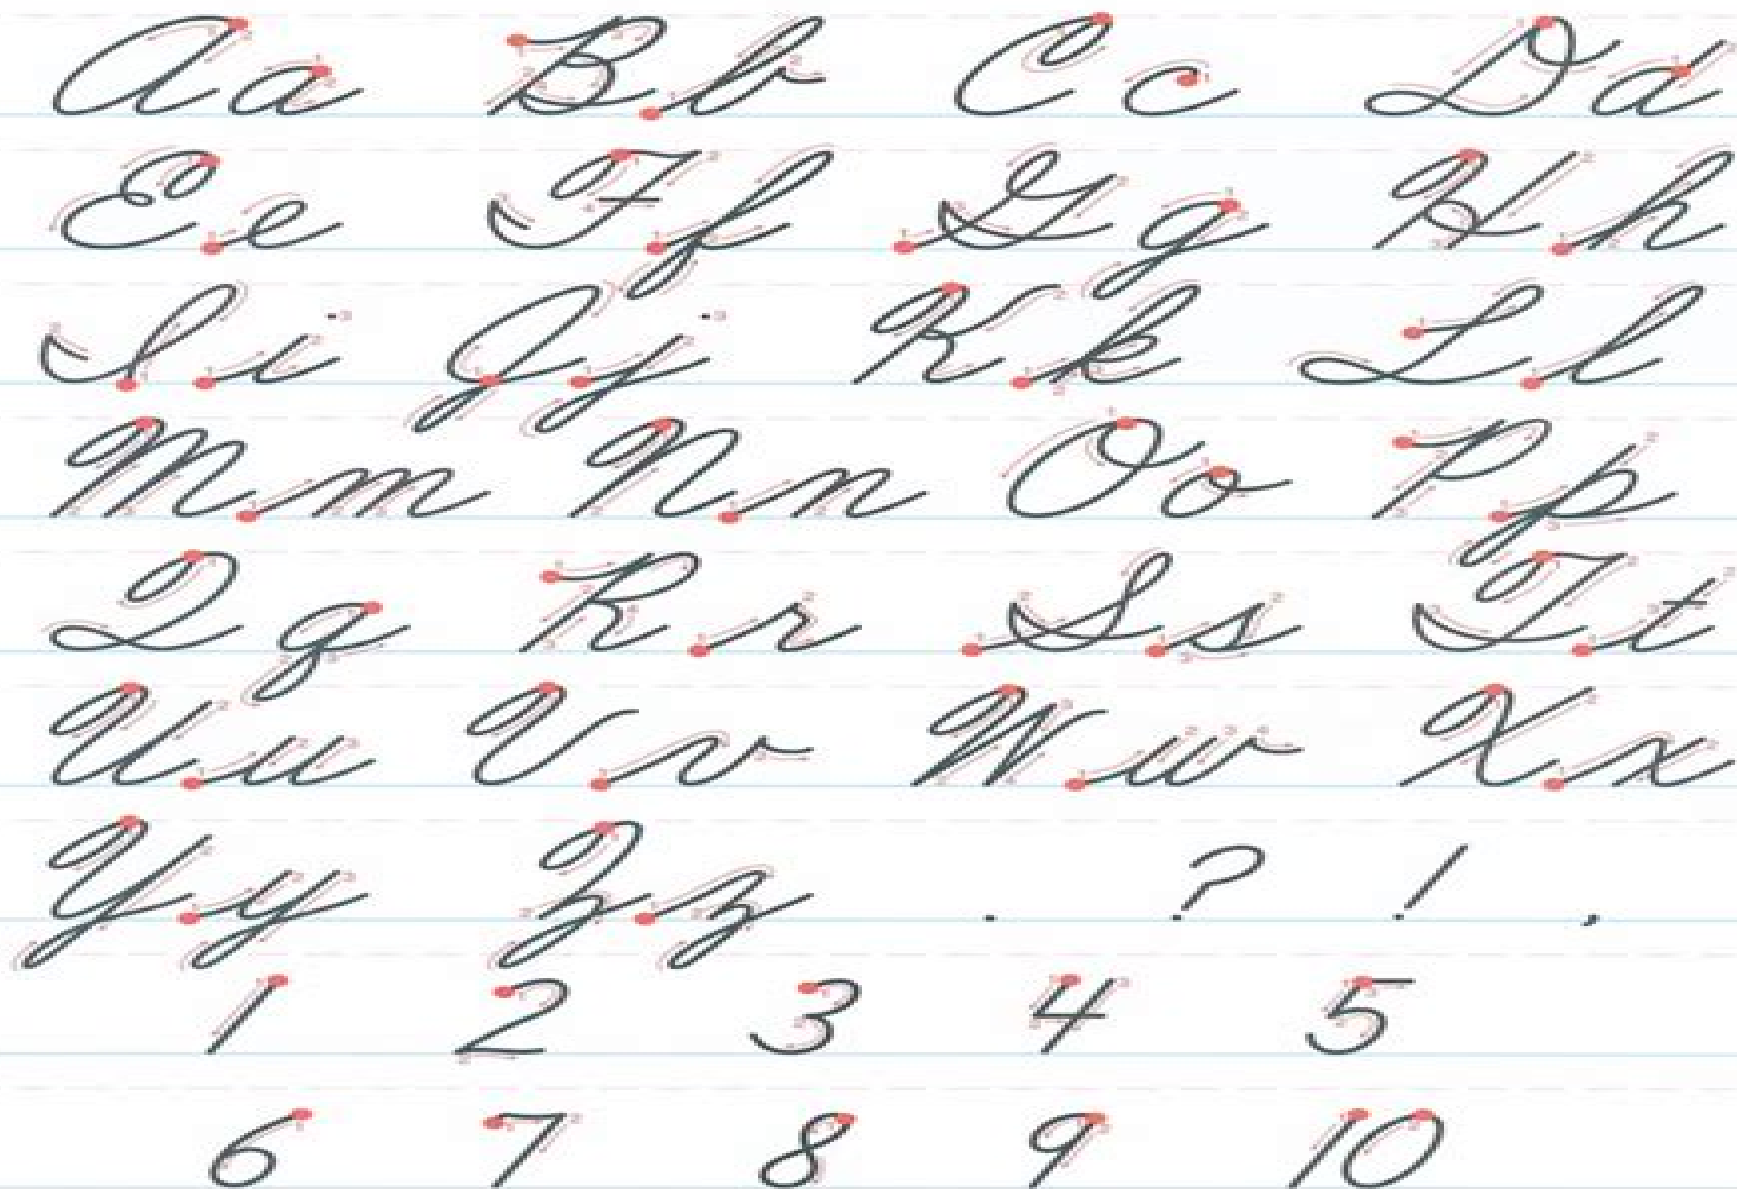 Aa Bb Cc Dd
Ee Ff Gg Hh
Ii Jj Kk Ll
Mm Nn Oo Pp
Qq Rr Ss Tt
Uu Vv Ww Xx
Yy Zz . ? ! ,
1 2 3 4 5
6 7 8 9 10